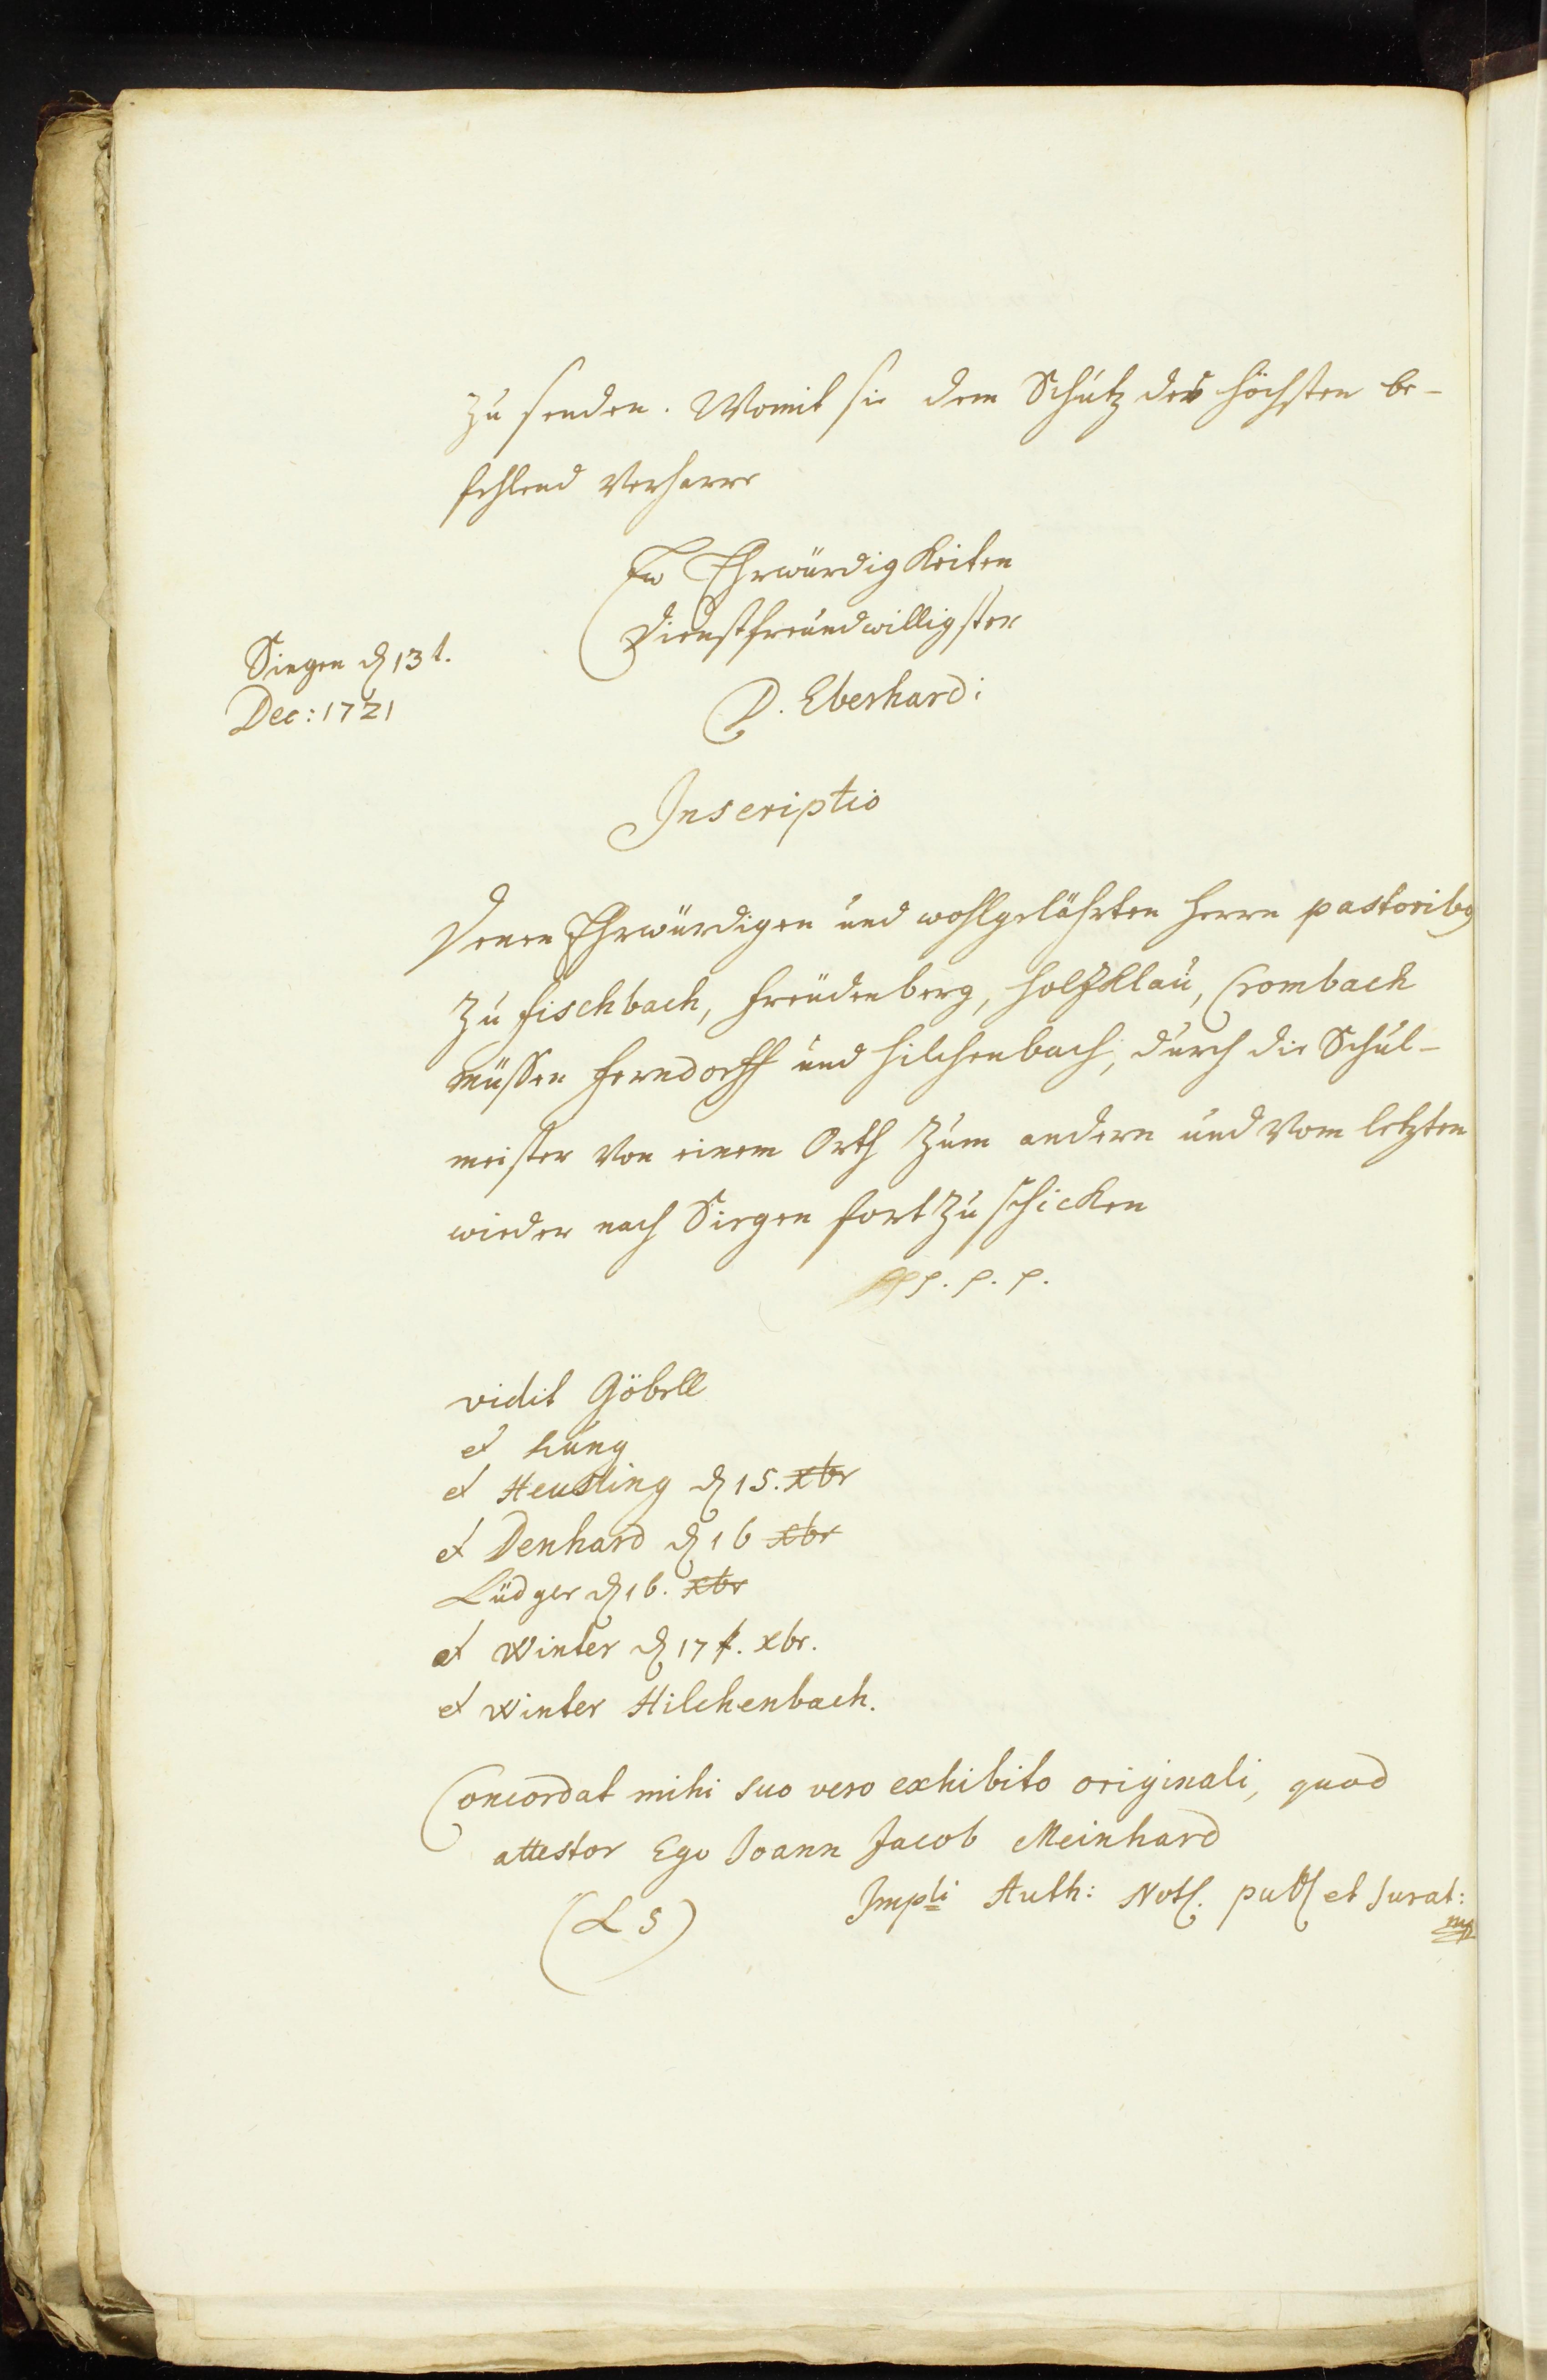 zu senden. Womit sie dem Schutz des höchsten be-
fehlend Verharre
Ew Ehrwürdigkeiten
Dienstfreundwilligster
Siegen d 13t.
Dec: 1721
D. Eberhardi
Inscriptio
Denen Ehrwürdigen und wohlgelährten Herrn pastoribq
zu fischbach, freudenberg, Holtzklau, Crombach
Müssen ferndorff und Hilchenbach, durch die Schul-
meister Von einem Orth zum andern und Vom letzten
wieder nach Siegen fort zu schicken
p. p. p.
vidit Göbell
et Jung
et Heusling d 15. xbr
et Denhard d 16 xbr
Lüdger d 16. xbr
et Winter d 17t. xbr.
et Winter Hilchenbach.
Concordat mihi suo vero exhibito originali, quod
attestor Ego Joann Jacob Meinhard
Impli Auth: Not. publ et Jurat:
mp
(L S)